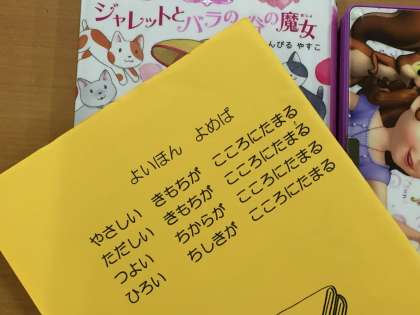 ジャレットとバラの谷の魔女
んびる やすこ
よいほん よめば
やさしい きもちが こころにたまる
ただしい きもちが こころにたまる
つよい ちからが こころにたまる
ひろい ちしきが こころにたまる